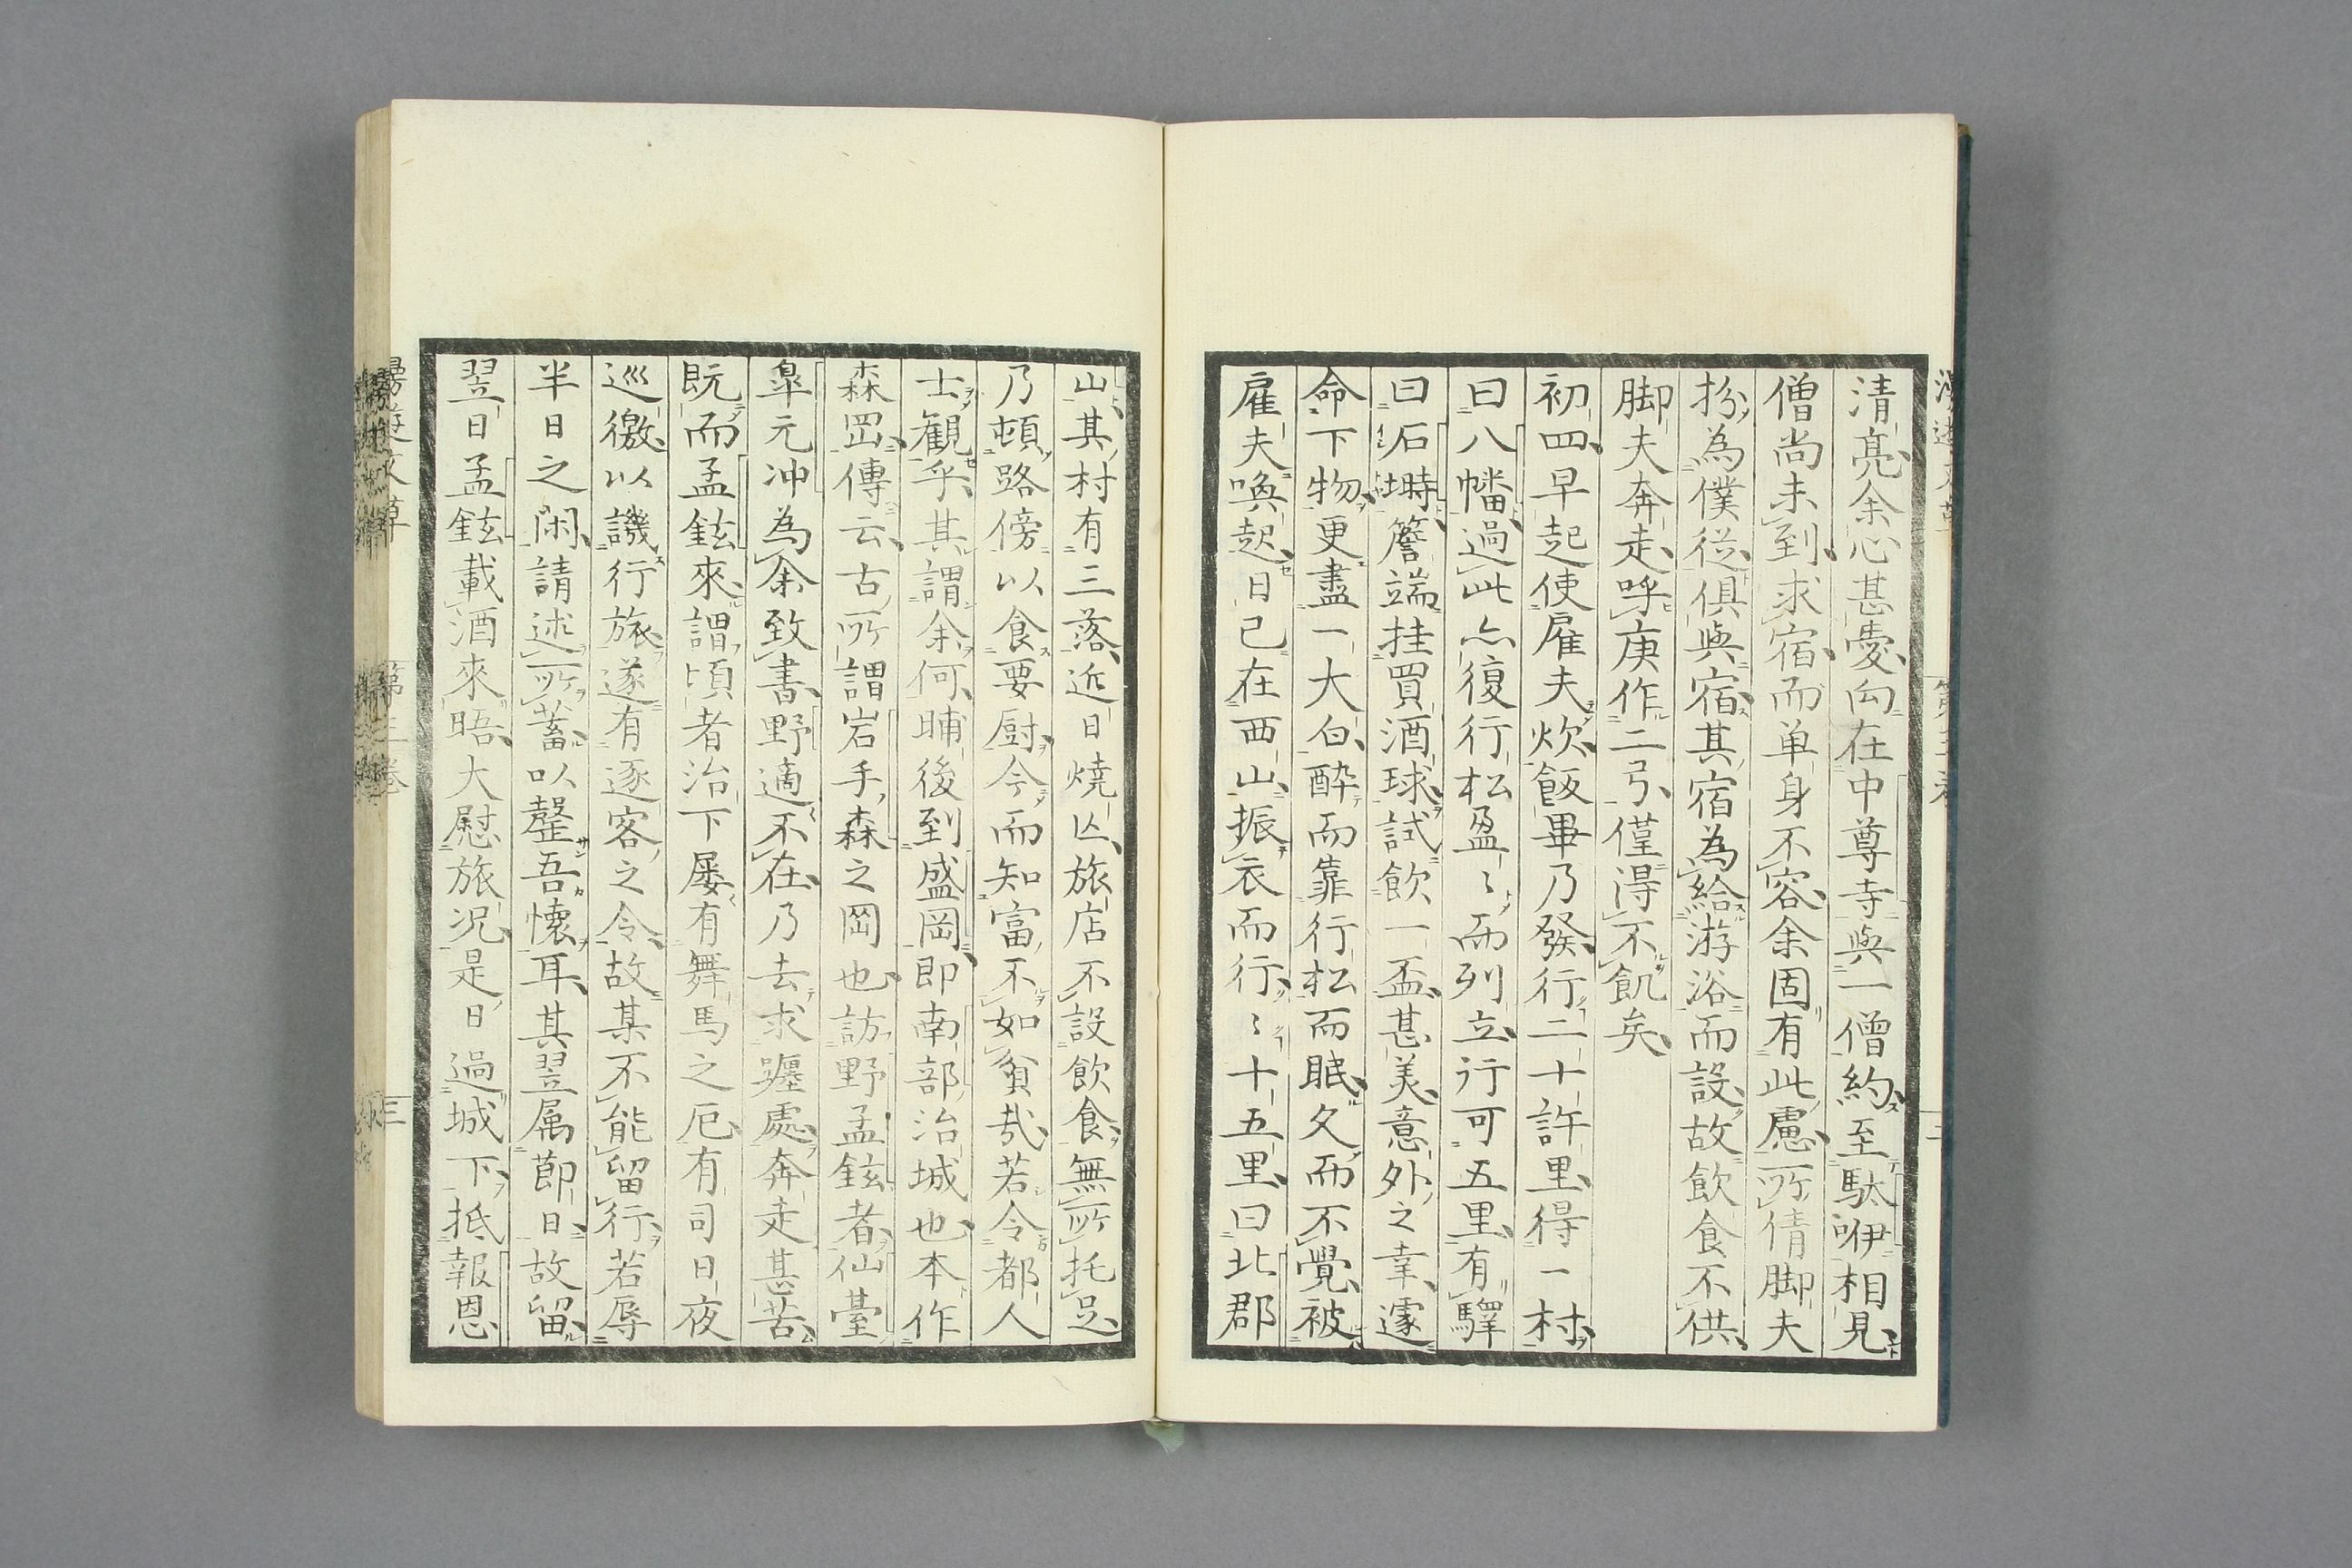 清亮余心甚憂向在中尊寺與一僧約至駄咿相見
僧尚未到求宿而単身不容余固有此慮所倩脚夫
扮為僕従俱與宿其宿為給游浴而設故飲食不供
脚夫奔走呼庚作二弓僅得不飢矣
初四早起使雇夫炊飯畢乃發行二十許里得一村
曰八幡過此亦復行松盈〻而列立行可五里有驛
曰石塒簷端挂買酒球試飲一盃甚美意外之幸遽
命下物更盡一大白酔而靠行松而眠久而不覺被
雇夫喚起日已在西山振衣而行〻十五里曰北郡
山其村有三落近日燒亾旅店不設飲食無所托足
乃頓路傍以食要厨今而知富不如貧哉若令都人
士観乎其謂余何晡後到盛岡即南部治城也本作
森岡傳云古所謂岩手森之岡也訪野孟鉉者仙臺
皐元冲為余致書野適不在乃去求躔處奔走甚苦
既而孟鉉來謂頃者治下屡有舞馬之厄有司日夜
巡徼以譏行旅遂有逐客之令故某不能留行若辱
半日之閑請述所蓄以罄吾懷耳其翌属節日故留
翌日孟鉉載酒來晤大慰旅况是日過城下抵報恩
第三巻
三